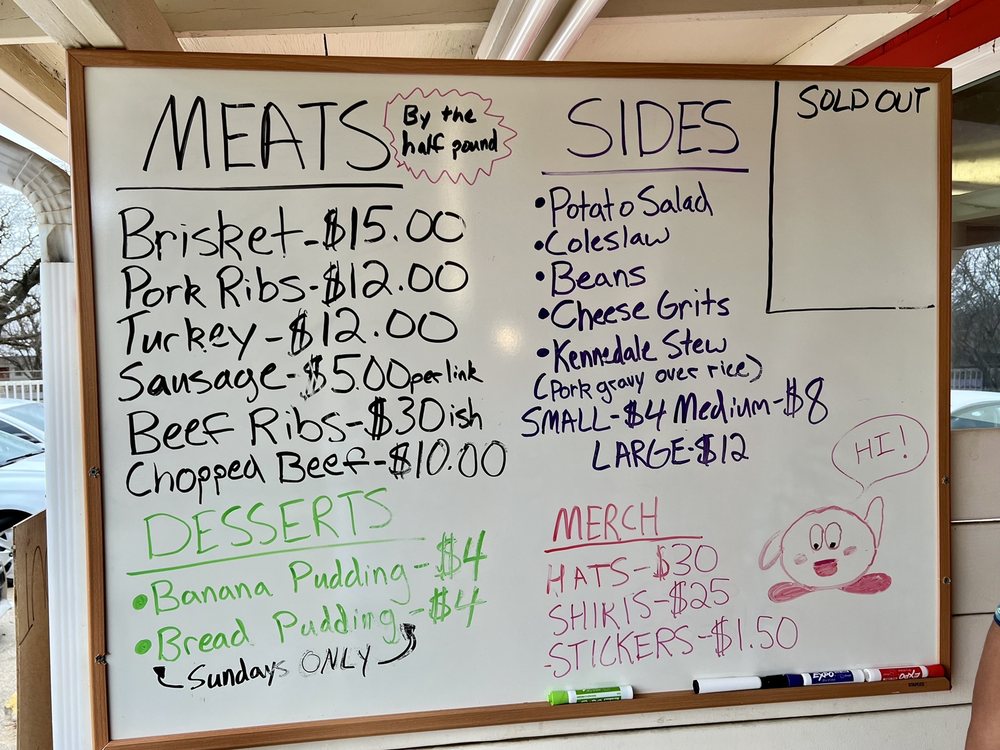 MEATS
By the
half pound
Brisket-$15.00
Pork Ribs-$12.00
Turkey-$12.00
Sausage-$5.00 per link
Beef Ribs-$30ish
Chopped Beef-$10.00
DESSERTS
•Banana Pudding-$4
•Bread Pudding-$4
Sundays ONLY
SIDES
•Potato Salad
•Coleslaw
•Beans
•Cheese Grits
•Kennedale Stew
(Pork gravy over rice)
SMALL-$4 Medium-$8
LARGE-$12
SOLD OUT
HI!
MERCH
HATS-$30
SHIRTS-$25
-STICKERS-$1.50
EXPO
EXPO
STAPLES